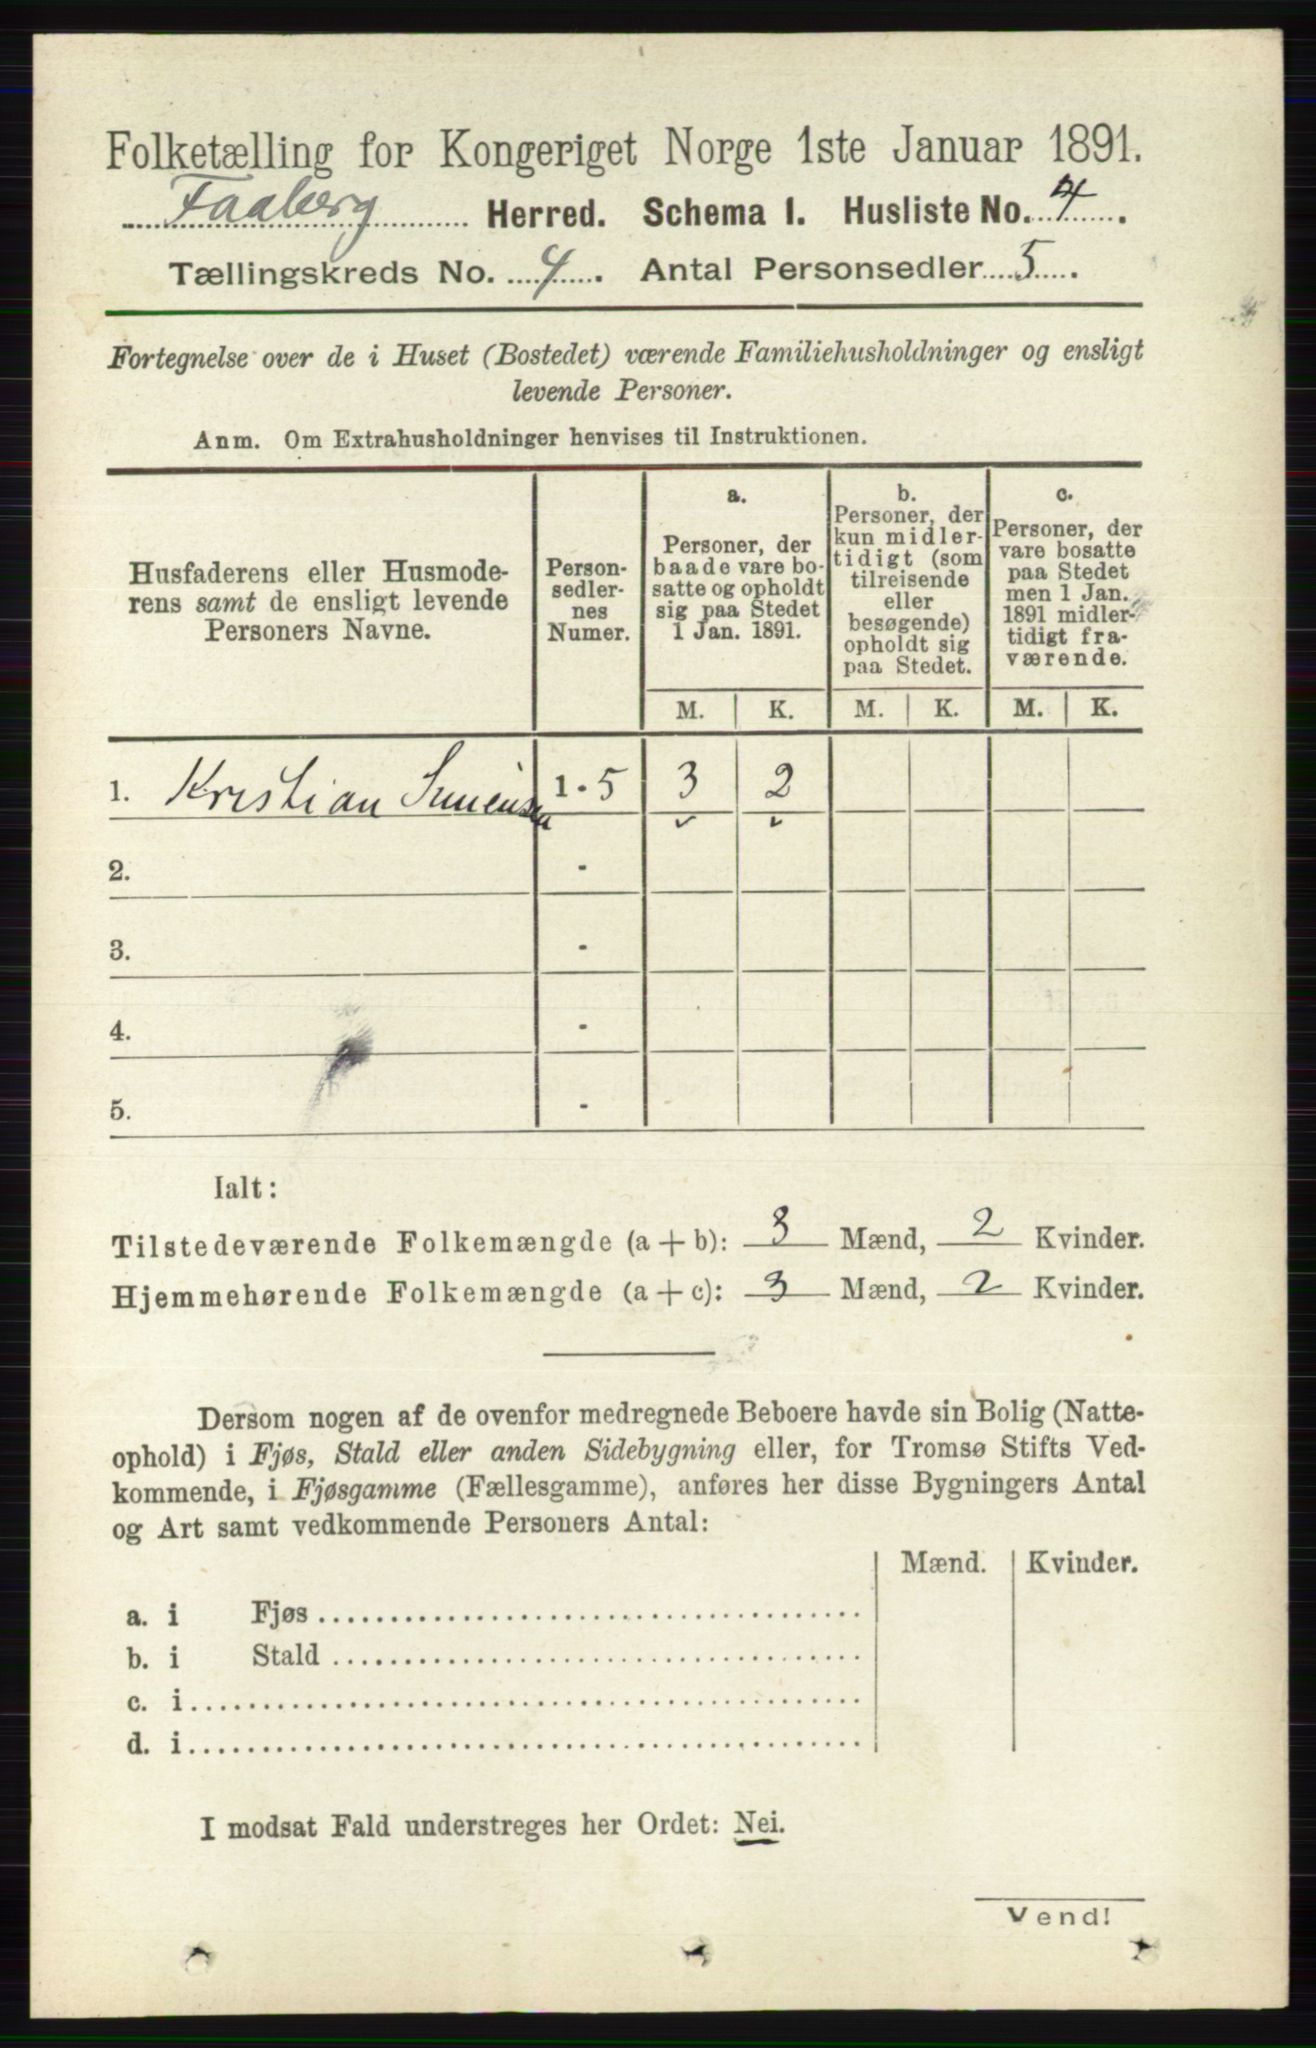 Folketælling for Kongeriget Norge 1ste Januar 1891.
Faaberg Herred. Schema 1. Husliste No. 4.
Tællingskreds No. 4. Antal Personsedler 5.
Fortegnelse over de i Huset (Bostedet) værende Familiehusholdninger og ensligt
levende Personer.
Anm. Om Extrahusholdninger henvises til Instruktionen.
Husfaderens eller Husmode-
rens samt de ensligt levende
Personers Navne.
Person-
sedler-
nes
Numer.
a.
Personer, der
baade vare bo-
satte og opholdt
sig paa Stedet
1 Jan. 1891.
b.
Personer, der
kun midler-
tidigt (som
tilreisende
eller
besøgende)
opholdt sig
paa Stedet.
c.
Personer, der
vare bosatte
paa Stedet
men 1 Jan.
1891 midler-
tidigt fra-
værende.
M. K. M. K. M. K.
1. Kristian Simensen 1 - 5 3 2
2. -
3. -
4. -
5. -
Ialt:
Tilstedeværende Folkemængde (a + b): 3 Mænd, 2 Kvinder.
Hjemmehørende Folkemængde (a + c): 3 Mænd, 2 Kvinder.
Dersom nogen af de ovenfor medregnede Beboere havde sin Bolig (Natte-
ophold) i Fjøs, Stald eller anden Sidebygning eller, for Tromsø Stifts Ved-
kommende, i Fjøsgamme (Fællesgamme), anføres her disse Bygningers Antal
og Art samt vedkommende Personers Antal:
Mænd. Kvinder.
a. i Fjøs
b. i Stald
c. i
d. i
I modsat Fald understreges her Ordet: Nei.
Vend!